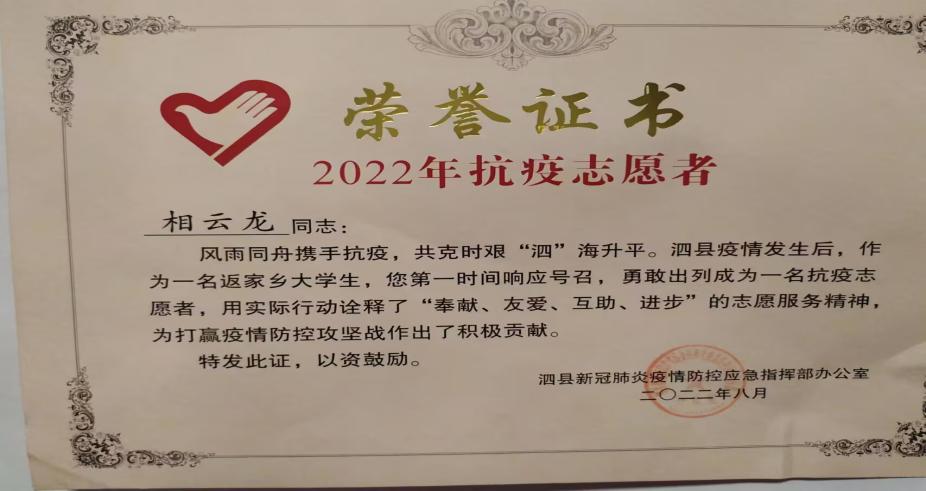 荣誉证书
2022年抗疫志愿者
相云龙 同志：
风雨同舟携手抗疫，共克时艰“泗”海升平。泗县疫情发生后，作
为一名返家乡大学生，您第一时间响应号召，勇敢出列成为一名抗疫志
愿者，用实际行动诠释了“奉献、友爱、互助、进步”的志愿服务精神，
为打赢疫情防控攻坚战作出了积极贡献。
特发此证，以资鼓励。
泗县新冠肺炎疫情防控应急指挥部办公室
二〇二二年八月